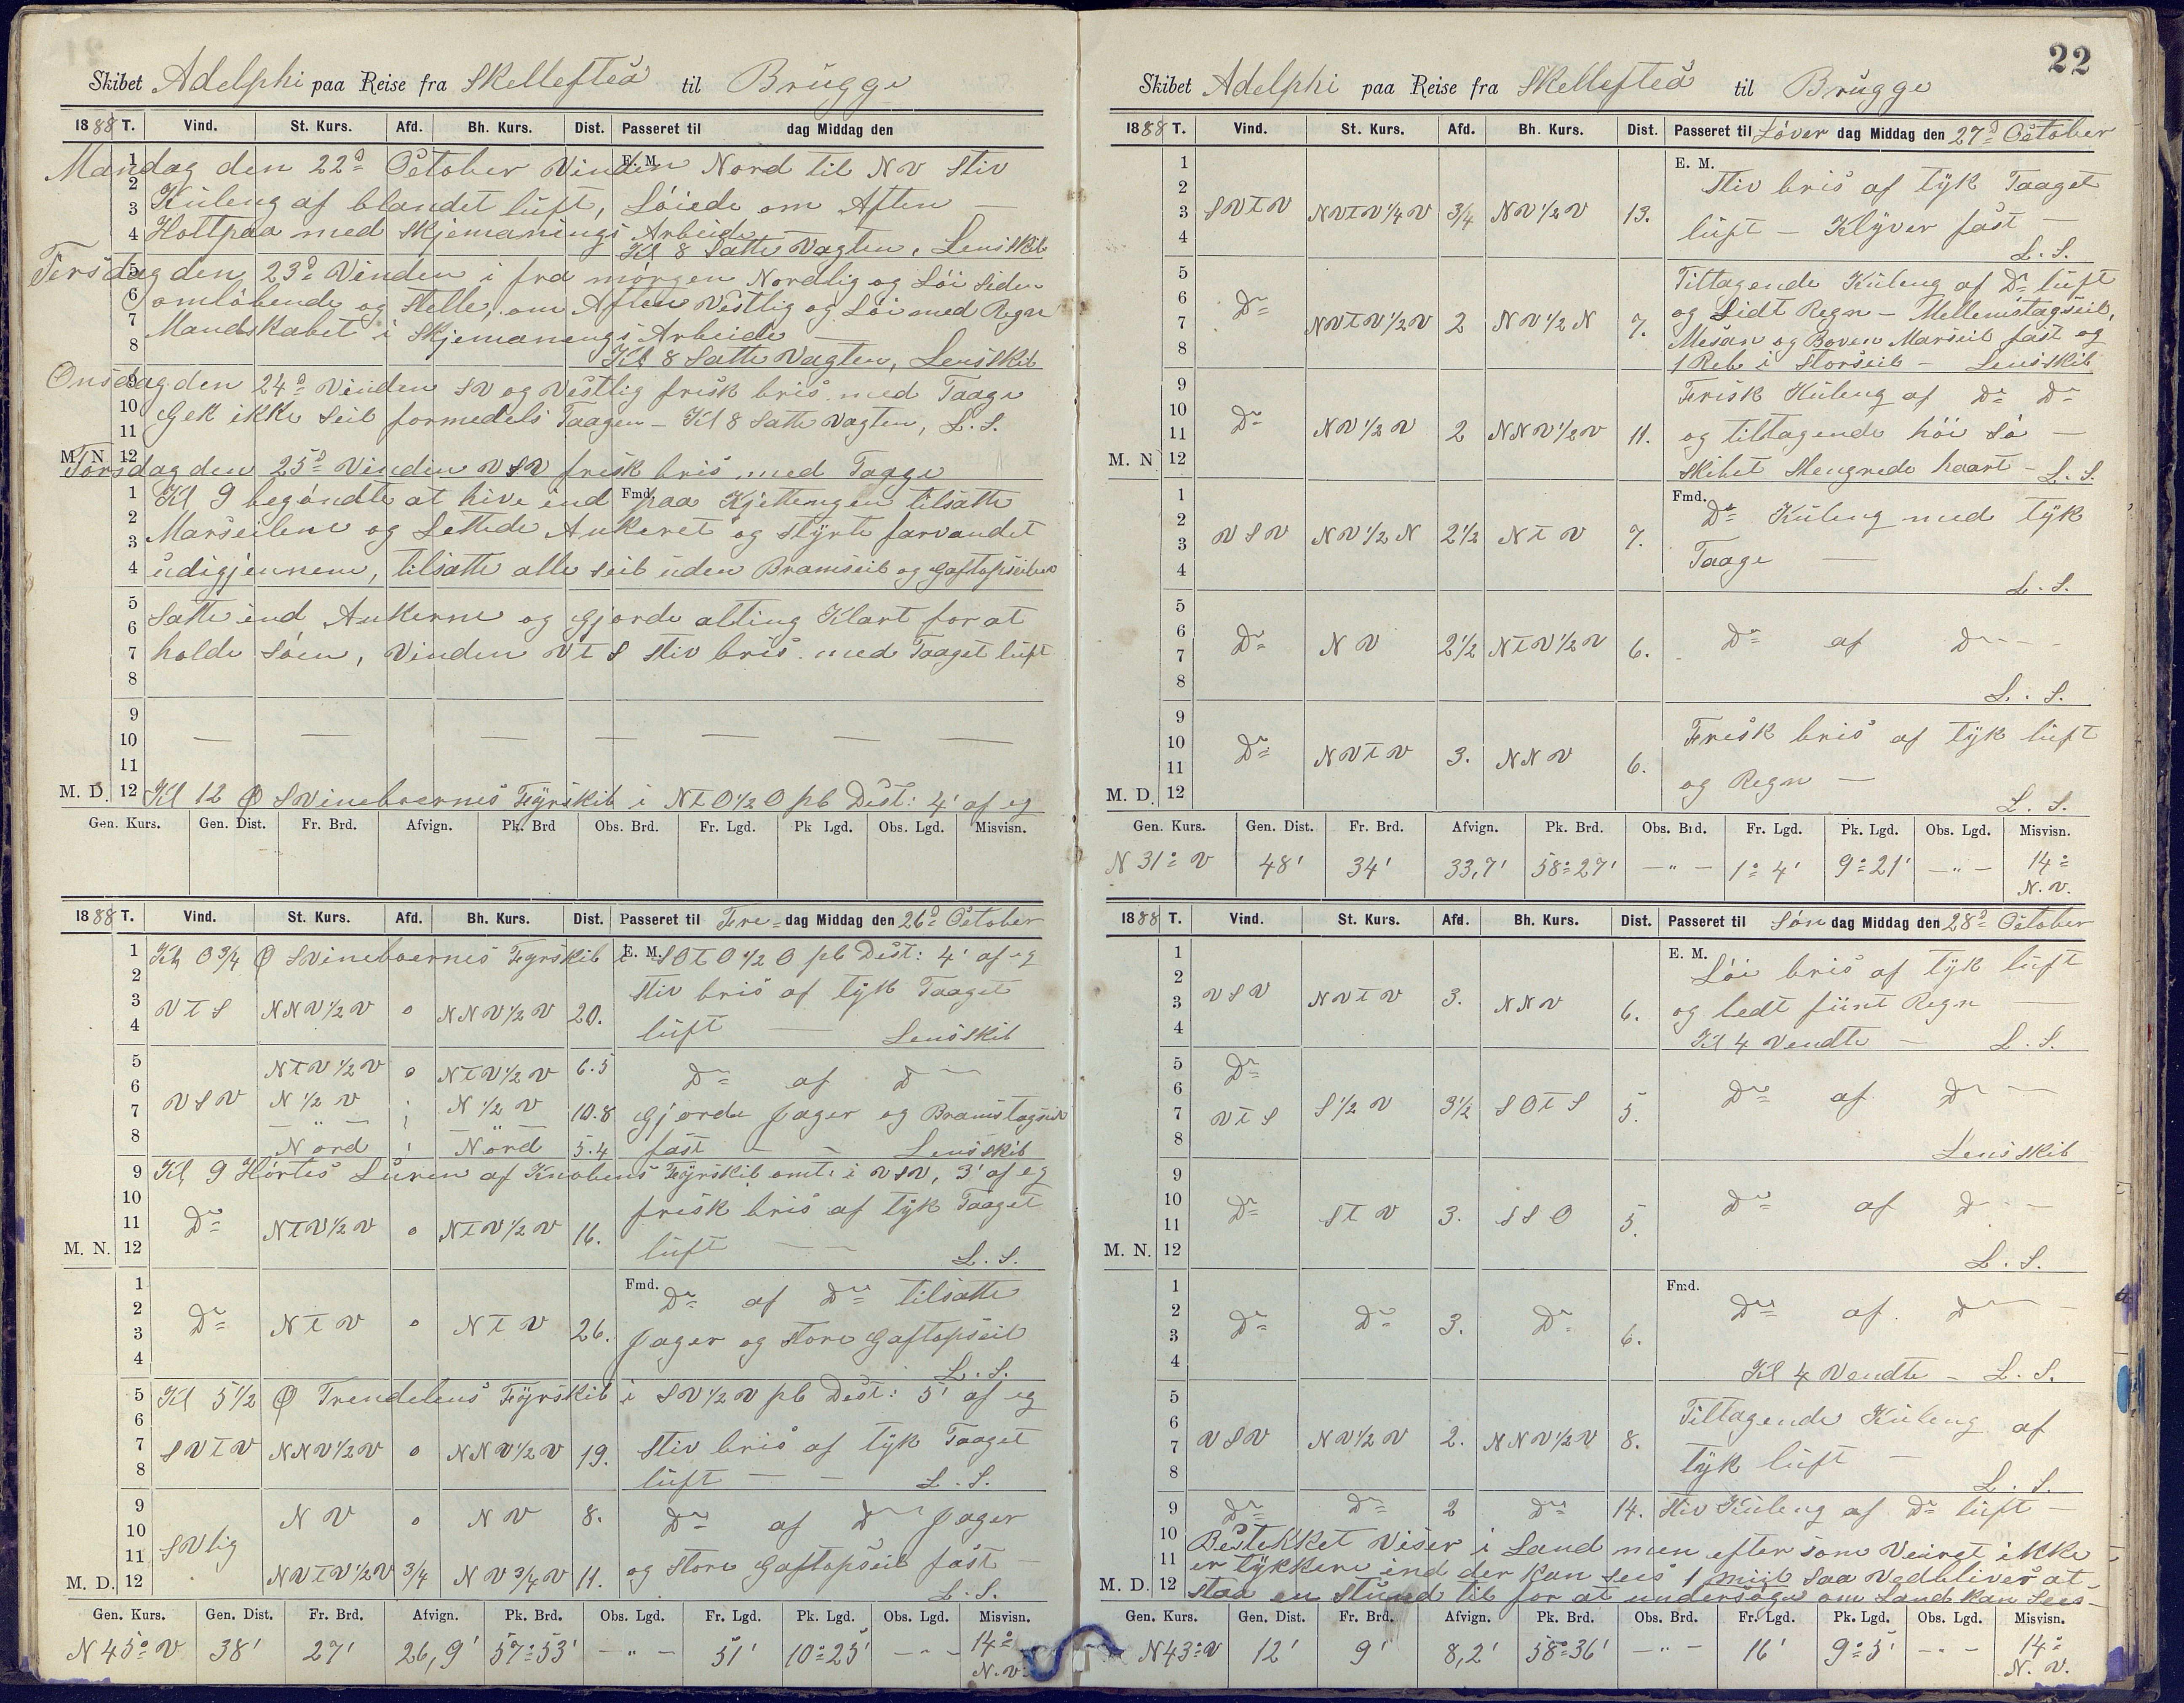 Skibet Adelphi paa Reise fra Skellefteå til Brügge
1888 T. Vind. St. Kurs. Afd. Bh. Kurs. Dist. Passeret til dag Middag den
Mandag den 22d October Vinden Nord til NV Stiv
Kuling af blandet luft, Løiede om Aften —
Holtpaa med Skjemanings Arbeide —
Kl 8 Satte Vagten, Lensskib
Tirsdag den 23d Vinden i fra mórgen Nordlig og Lói Siden
omlóbende og Stelle, om Aften Vestlig og Lói med Regn
Mandskabet i Skjemanings Arbeide —
Kl 8 Satte Vagten, Lensskib
Onsdag den 24d Vinden SV og Vestlig frisk bris med Taage
Gek ikke Seil formedels Taagen — Kl 8 Satte Vagten, L. S.
Torsdag den 25d Vinden VSV frisk bris med Taage
Kl 9 begóndte at hive ind paa Kjettengen tilsatte
Marseilene og Lettede Ankeret og Styrte farvandet
udigjennem, tilsatte alle Seil uden Bramseil og Gaftopseilene
Satte ind Ankerne og gjorde alting Klart for at
holde Sóen, Vinden VtS Stiv bris med Taaget luft
9
10 — — — — — — —
11
M. D. 12 Kl 12 Φ Svinebaernes Fyrskib i NtO½O pb Dist: 4' af eg
Gen. Kurs. Gen. Dist. Fr. Brd. Afvign. Pk. Brd Obs. Brd. Fr. Lgd. Pk Lgd. Obs. Lgd. Misvisn.
1888 T. Vind. St. Kurs. Afd. Bh. Kurs. Dist. Passeret til Fre-dag Middag den 26d October
Kl 0¾ Φ Svinebaernes Fyrskib i SOtO½O pb Dist: 4' af eg
E. M.
VtS NNV½V 0 NNV½V 20. Stiv bris af tyk Taaget
luft — Lensskib
NtV½V 0 NtV½V 6.5 Do af D —
VSV N½V N½V 10.8 Gjorde Jager og Bramstagseil
Nord Nord 5.4 fast — — Lensskib
Kl 9 Hórtes Luren af Knobens Fyrskib omt. i VSV, 3' af eg
Do NtV½V 0 NtV½V 16. frisk bris af tyk Taaget
M. N. 12 luft — L. S.
Fmd.
Do NtV 0 NtV 26. Do af Do tilsatte
Jager og Store Gaftopseil
L. S.
Kl 5½ Φ Trendelens Fyrskib i SV½V pb Dist: 5' af eg
SVtV NNV½V 0 NNV½V 19. Stiv bris af tyk Taaget
luft — — L. S.
NV 0 NV 8. Do af D Jager
SVlig NVtV½V ¾ NV¾V 11. og Store Gaftopseil fast —
M. D. 12 L. S.
Gen. Kurs. Gen. Dist. Fr. Brd. Afvign. Pk. Brd. Obs. Lgd. Fr. Lgd. Pk. Lgd. Obs. Lgd. Misvisn.
N 45° V 38' 27' 26,9' 57° 53' — " — 51' 10° 25' — - — 14° N. V.
22
Skibet Adelphi paa Reise fra Skellefteå til Brügge
1888 T. Vind. St. Kurs. Afd. Bh. Kurs. Dist. Passeret til Lóver dag Middag den 27d October
E. M.
SVtV NVtV¼V ¾ NV½V 13. Stiv bris af tyk Taaget
luft — Klyver fast —
L. S.
Do NVtV½V 2 NV½N 7. Tiltagende Kuling af Do luft
og Lidt Regn — Mellemstagseil,
Mesan og Boven Marseil fast og
1 Reb i Storseil — Lensskib
Do NV½V 2 NNV½V 11. Frisk Kuling af Do Do
og tiltagende hói Só —
M. N 12 Skibet Slengrede haart — L. S.
Fmd.
VSV NV½N 2½ NtV 7. Do Kuling med tyk
Taage —
L. S.
Do NV 2½ NtV½V 6. Do af D — -
L. S.
Do NVtV 3. NNV 6. Frisk bris af tyk luft
og Regn —
M. D. 12 L. S.
Gen. Kurs. Gen. Dist. Fr. Brd. Afvign. Pk. Brd. Obs. Brd. Fr. Lgd. Pk. Lgd. Obs. Lgd. Misvisn.
N 31° V 48' 34' 33,7' 58° 27' — " — 1° 4' 9° 21' — " — 14° N. V.
1888 T. Vind. St. Kurs. Afd. Bh. Kurs. Dist. Passeret til Són dag Middag den 28d October
E. M.
VSV NVtV 3. NNV 6. Lói bris af tyk luft
og ledt fiint Regn —
Kl 4 Vendte — L. S.
Do
VtS S½V 3½ SOtS 5. Do af D —
Lensskib
Do StV 3. SSO 5. Do af D - —
M. N. 12 L. S.
Fmd.
Do Do 3. Do 6. Do af D —
Kl 4 Vendte — L. S.
VSV NV½V 2. NNV½V 8. Tiltagende Kuling af
tyk luft —
L. S.
Do Do 2 Do 14. Stiv Kuling af Do luft —
Bestekket Viser i Land men efter som Veiret ikke
er tykkere ind der kan sees 1 miil saa vedbliver at
M. D. 12 staa en Stund til for at undersóge om Land kan Sees —
Gen. Kurs. Gen. Dist. Fr. Brd. Afvign. Pk. Brd. Obs. Brd. Fr. Lgd. Pk. Lgd. Obs. Lgd. Misvisn.
N 43° V 12' 9' 8,2' 58° 36' — " — 16' 9° 5' — - — 14° N. V.